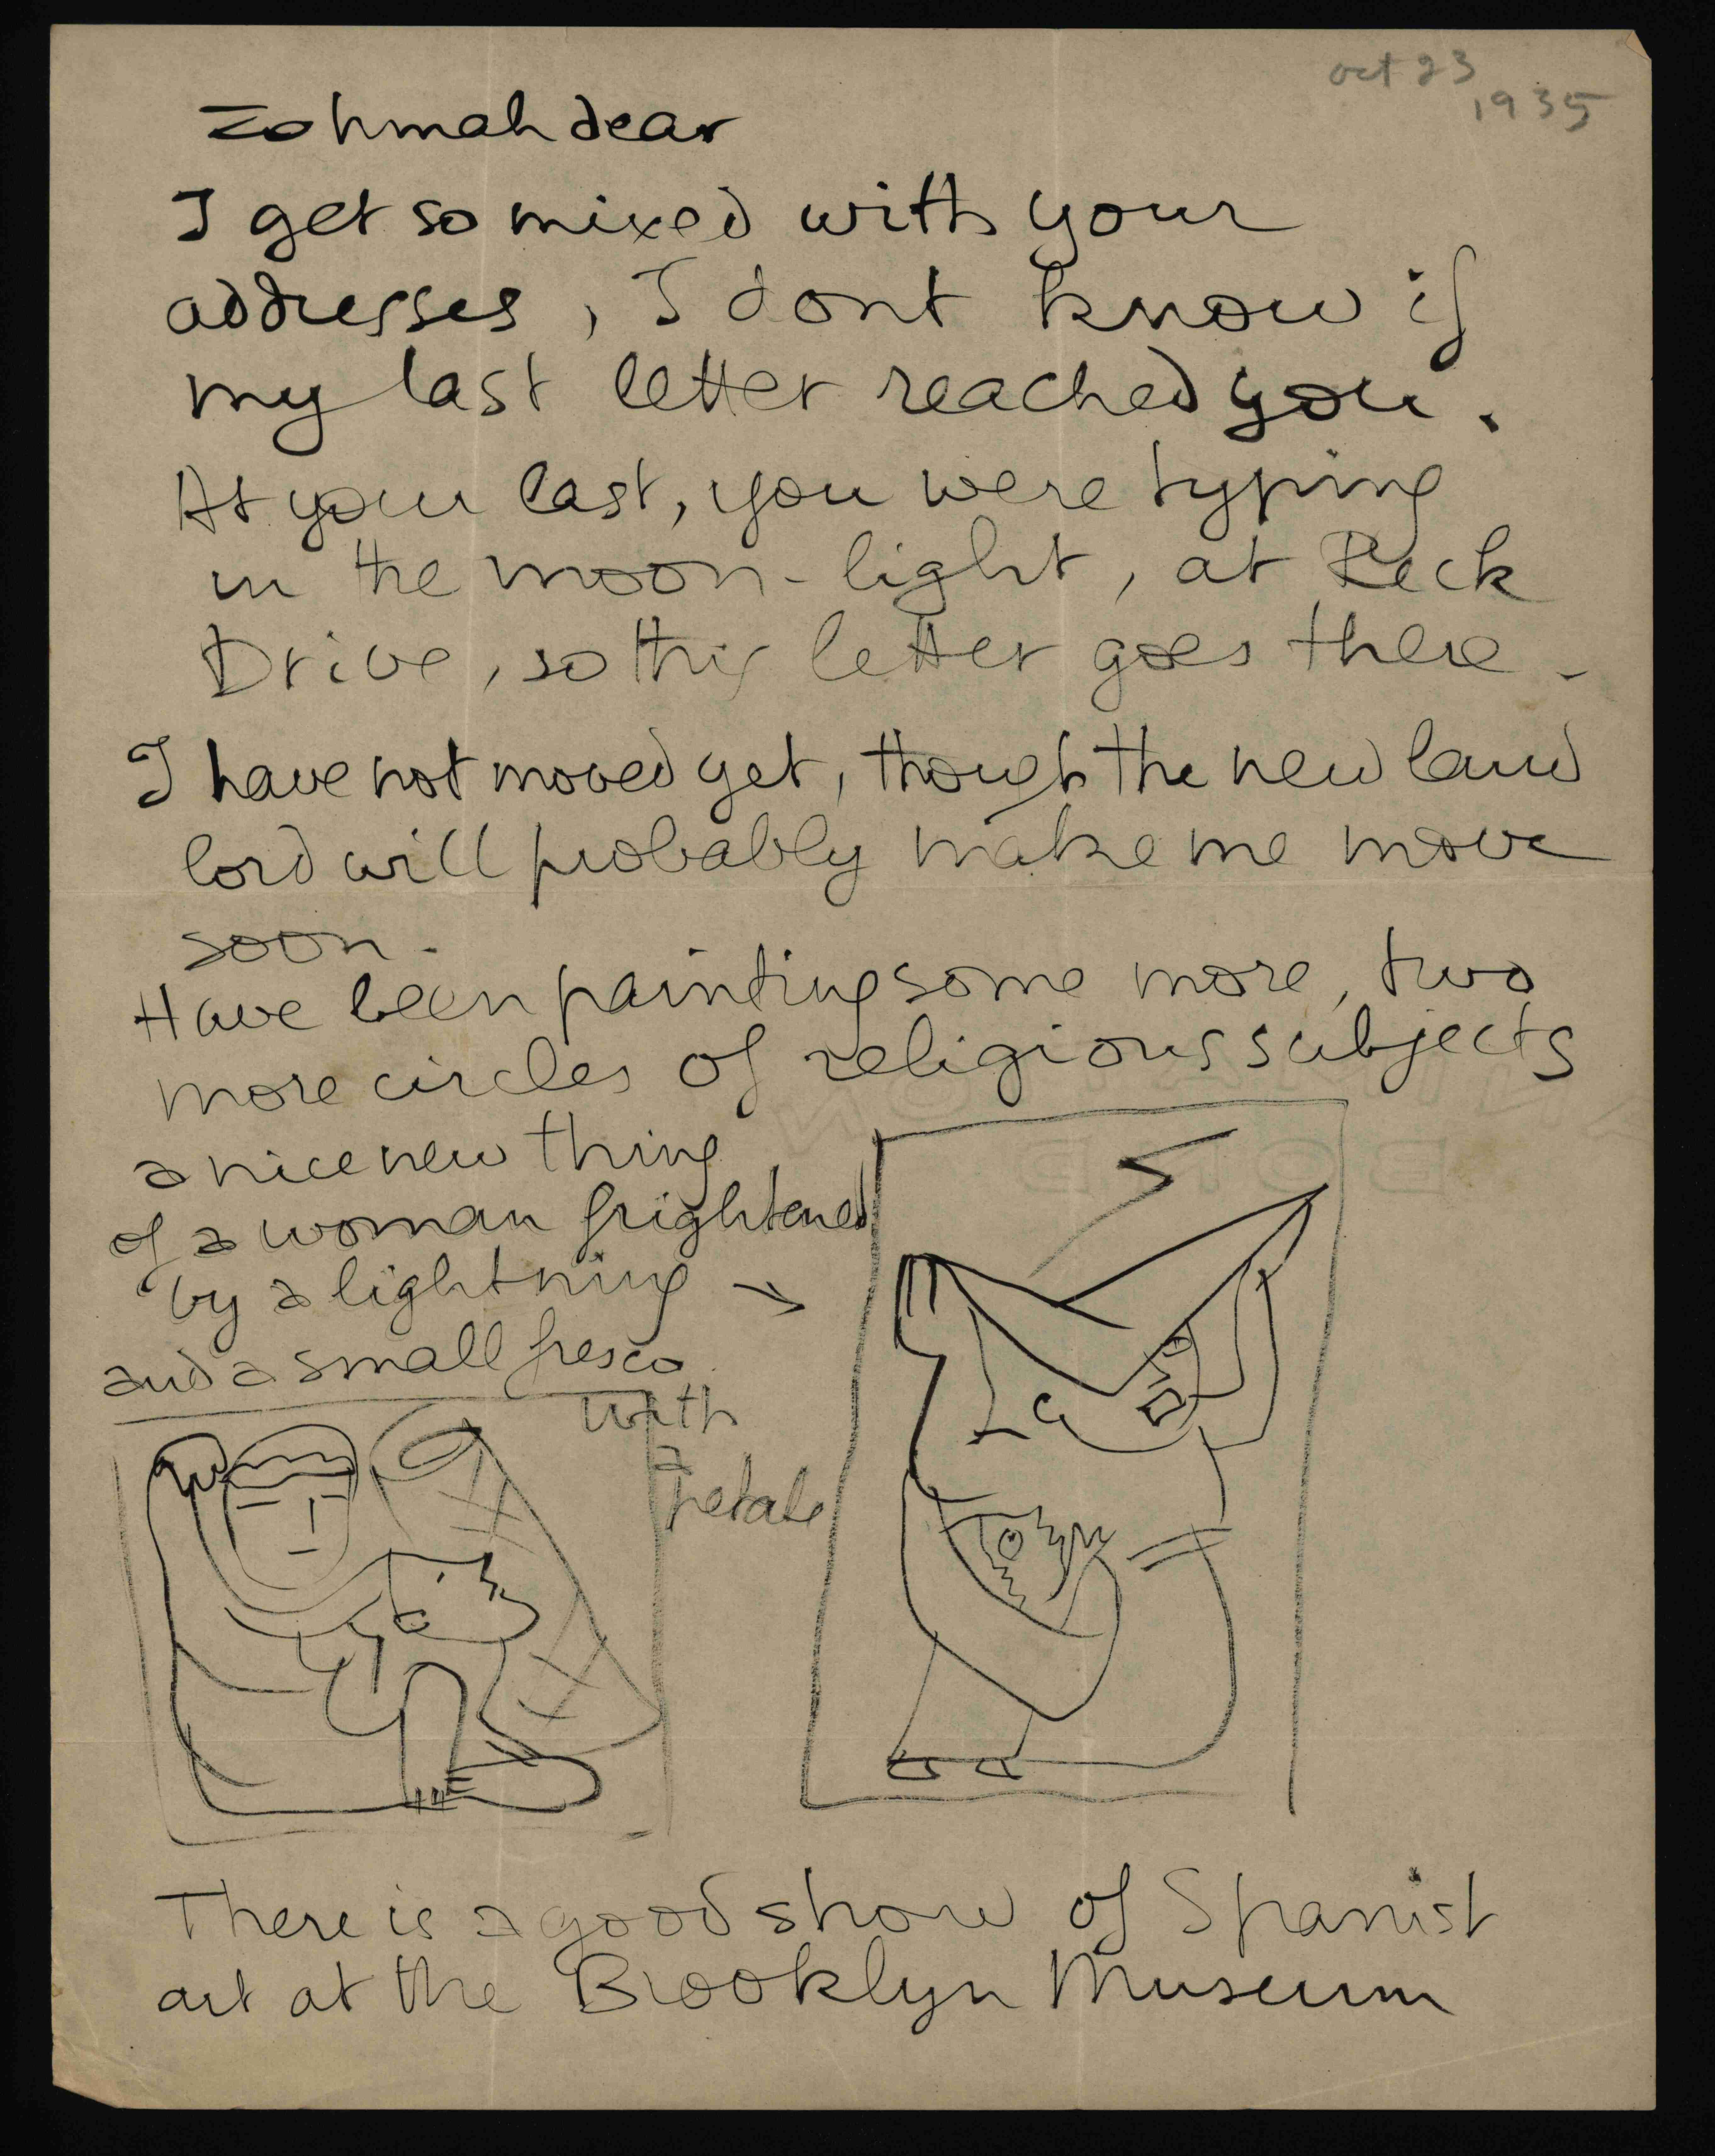 oct 23
1935
Zohmah dear
I get so mixed with your
addresses, I dont know if
my last letter reached you.
At your last, you were typing
in the moon-light, at Peck
Drive, so this letter goes there -
I have not moved yet, though the new land
lord will probably make me move
soon -
Have been painting some more, two
more circles of religious subjects
a nice new thing
of a woman frightened
by a lightning →
and a small fresco
with
a
petate
There is a good show of Spanish
art at the Brooklyn Museum